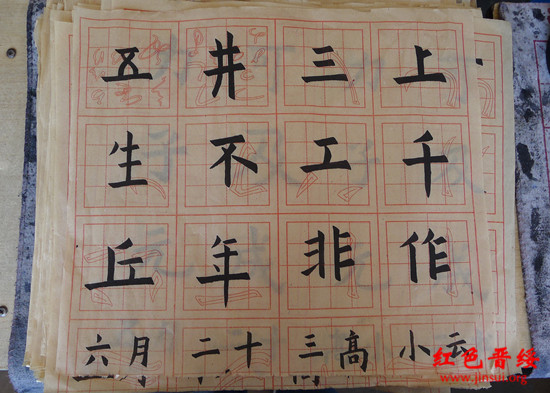 五 井 三 上
生 不 工 千
丘 年 非 作
六月 二十 三高 小云
红色晋绥
www.jinsui.org